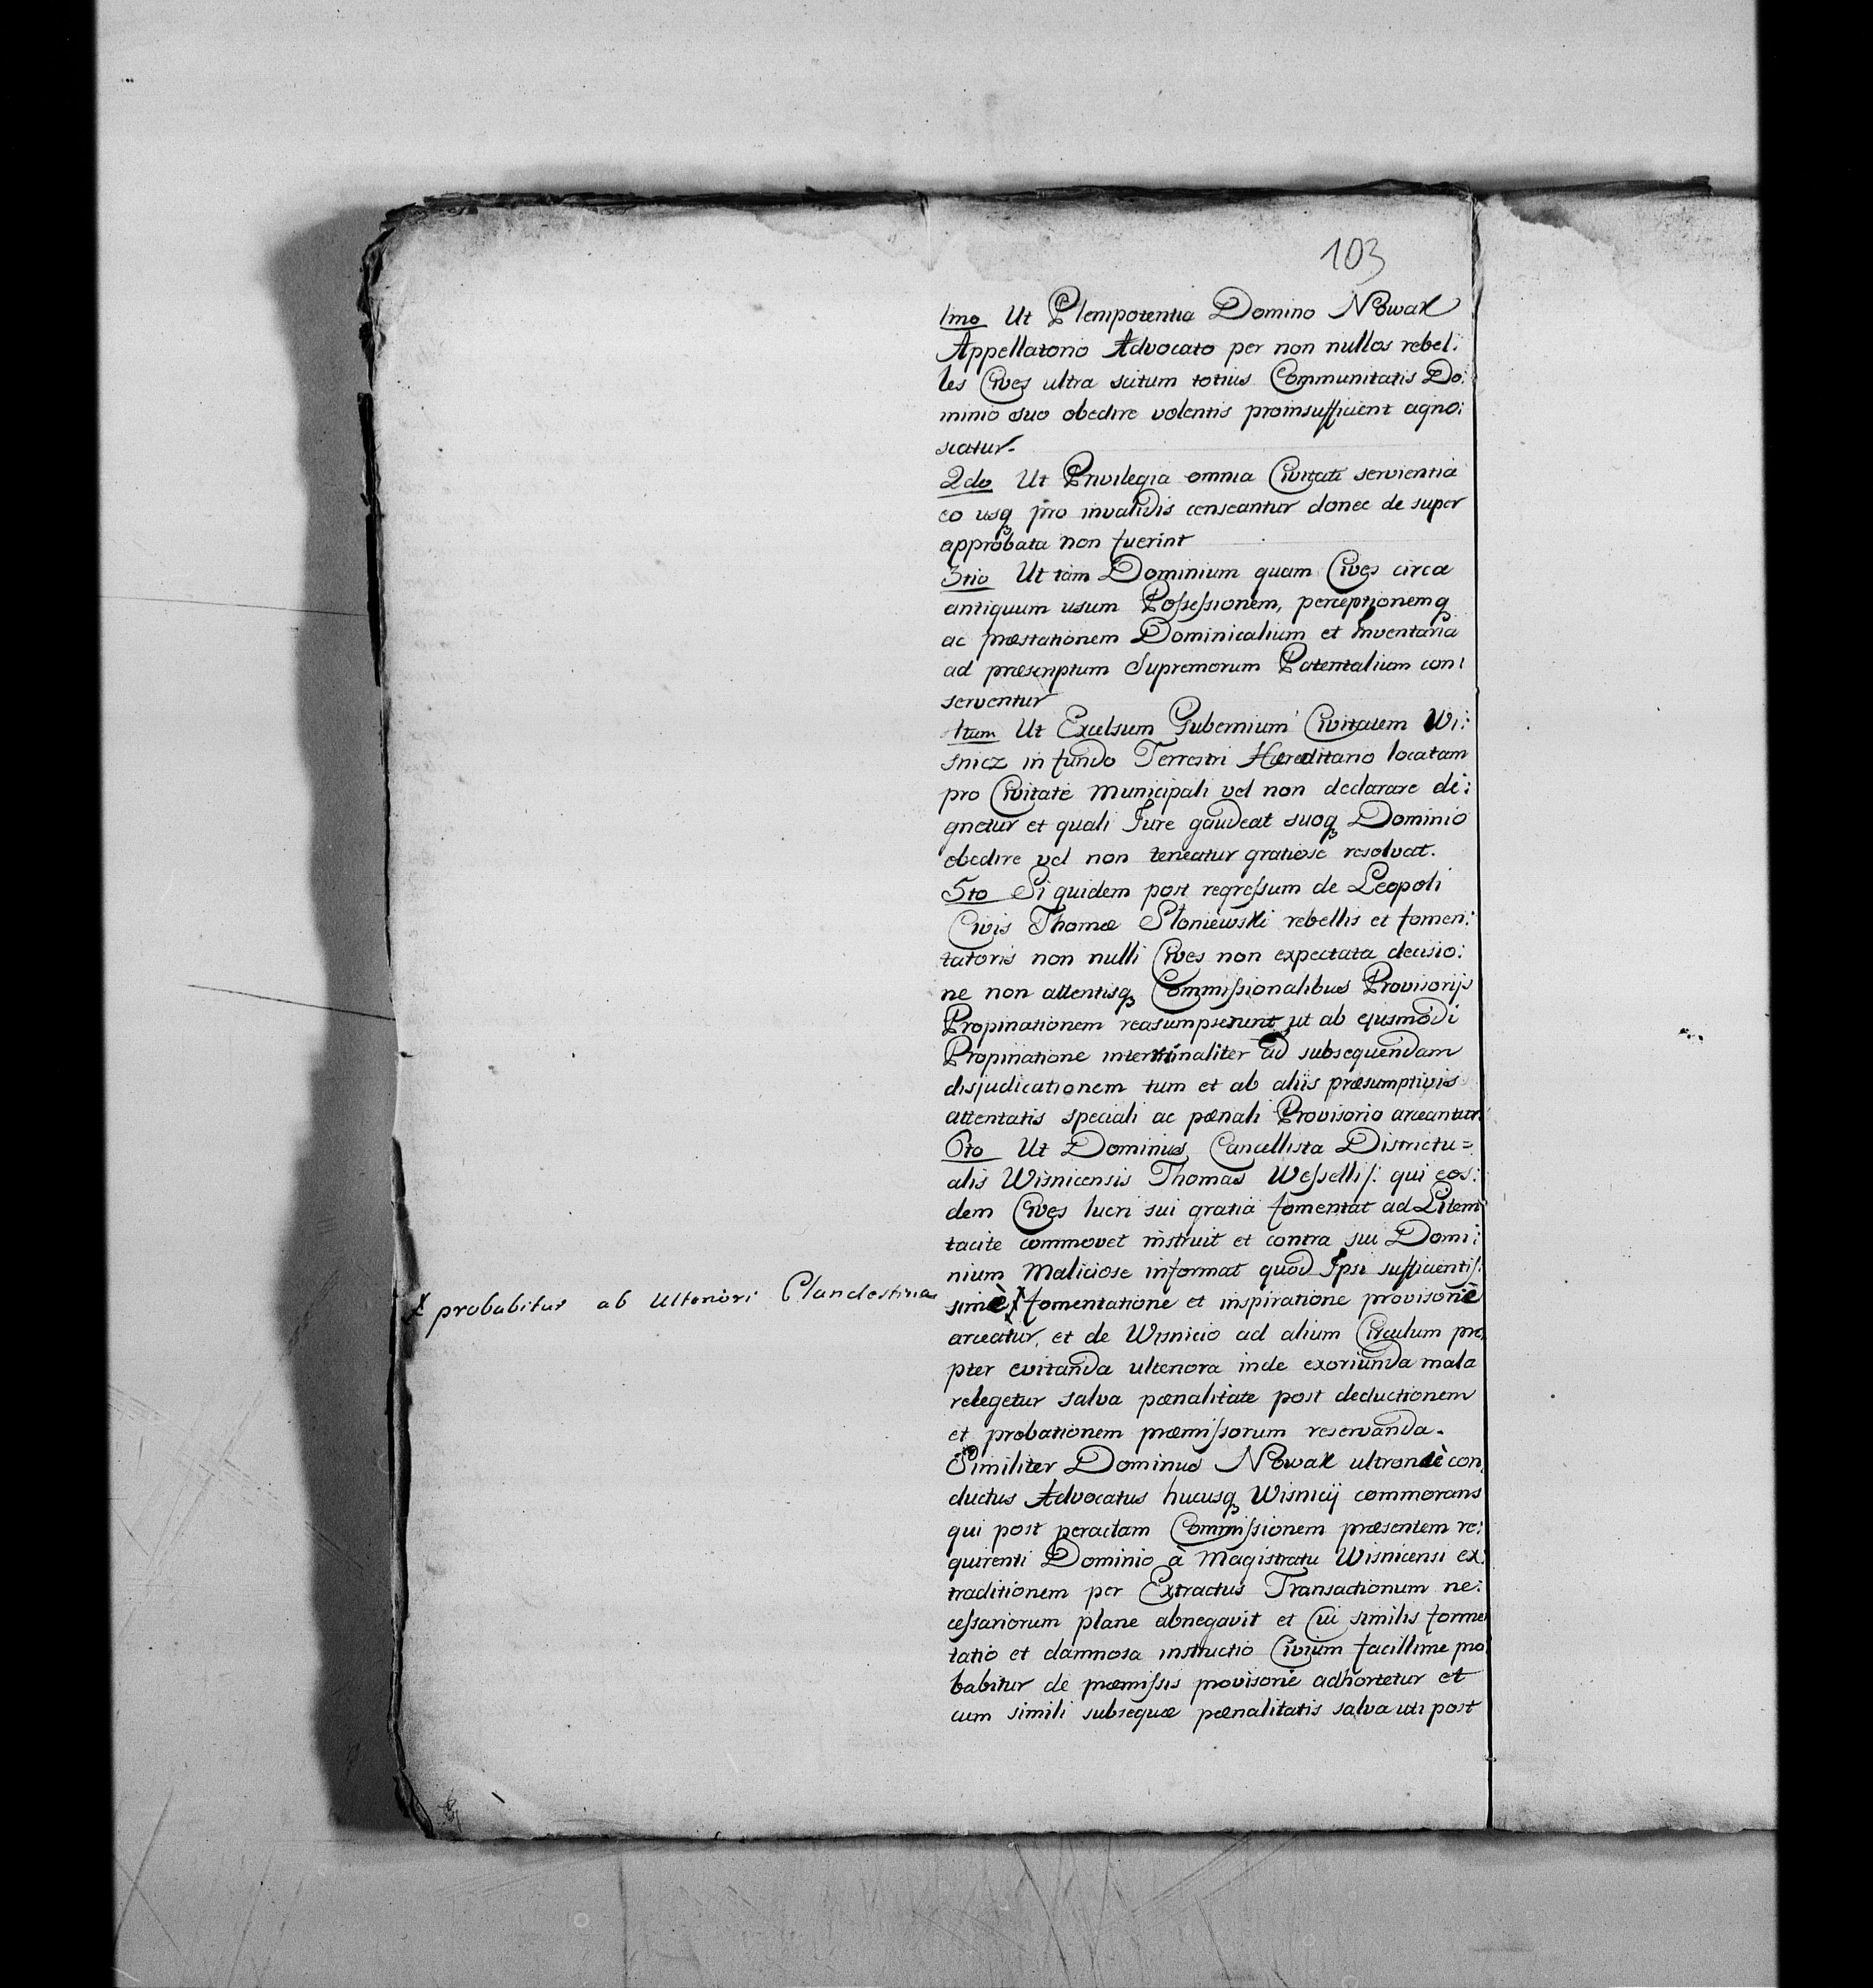 103
1mo Ut Plenipotentia Domino Nowak
Appellatorio Advocato per non nullos rebel:
les Cives ultra scitum totius Communitatis Do:
minio suo obedire volentis proinsufficient agno:
scatur.
2do Ut Privilegia omnia Civitati servientia
eo usq pro invalidis censeantur donec de super
approbata non fuerint
3tio Ut tam Dominium quam Cives circa
antiquum usum Possessionem, perceptionemq
ac præstationem Dominicalium et Inventaria
ad præscriptum Supremorum Patentalium con:
serventur
4tum Ut Excelsum Gubernium Civitatem Wi:
snicz in fundo Terrestri Hæreditario locatam
pro Civitate Municipali vel non declarare di:
gnetur et quali Jure gaudeat suoq Dominio
obedire vel non teneatur gratiose resolvat.
5to Si quidem post regressum de Leopoli
Civis Thomæ Słoniewski rebellis et fomen:
tatoris non nulli Cives non expectata decisio:
ne non attentisq Commissionalibus Provisorijs
Propinationem reasumpserunt ut ab ejusmodi
Propinatione interminaliter ad subsequendam
disjudicationem tum et ab aliis præsumptivis
attentatis speciali ac pænali Provisorio arceantur
6to Ut Dominus Cancellista Districtu=
alis Wisnicensis Thomas Wesselliſ: qui eos:
dem Cives lucri sui gratia fomentat ad Litem
tacite commovet instruit et contra sui Domi:
nium Maliciose informat quod Ipsi sufficientiſ:
simè x fomentatione et inspiratione provisoriè
x probabitur ab ulteriori Clandestina
arceatur, et de Wisnicio ad alium Circulum pro
pter evitanda ulteriora inde exoriunda mala
relegetur salva pænalitate post deductionem
et probationem præmissorum reservanda.
Similiter Dominus Nowak ultroneè con
ductus Advocatus hucusq Wisnicij commorans
qui post peractam Commissionem præsentem re:
quirenti Dominio à Magistratu Wisnicensi ex:
traditionem per Extractus Transactionum ne:
cessariorum plane abnegavit et Cui similis fome
tatio et damnosa instructio Civium facillime pro
babitur de præmissis provisorie adhortetur et
cum simili subsequæ pænalitatis salva uti post